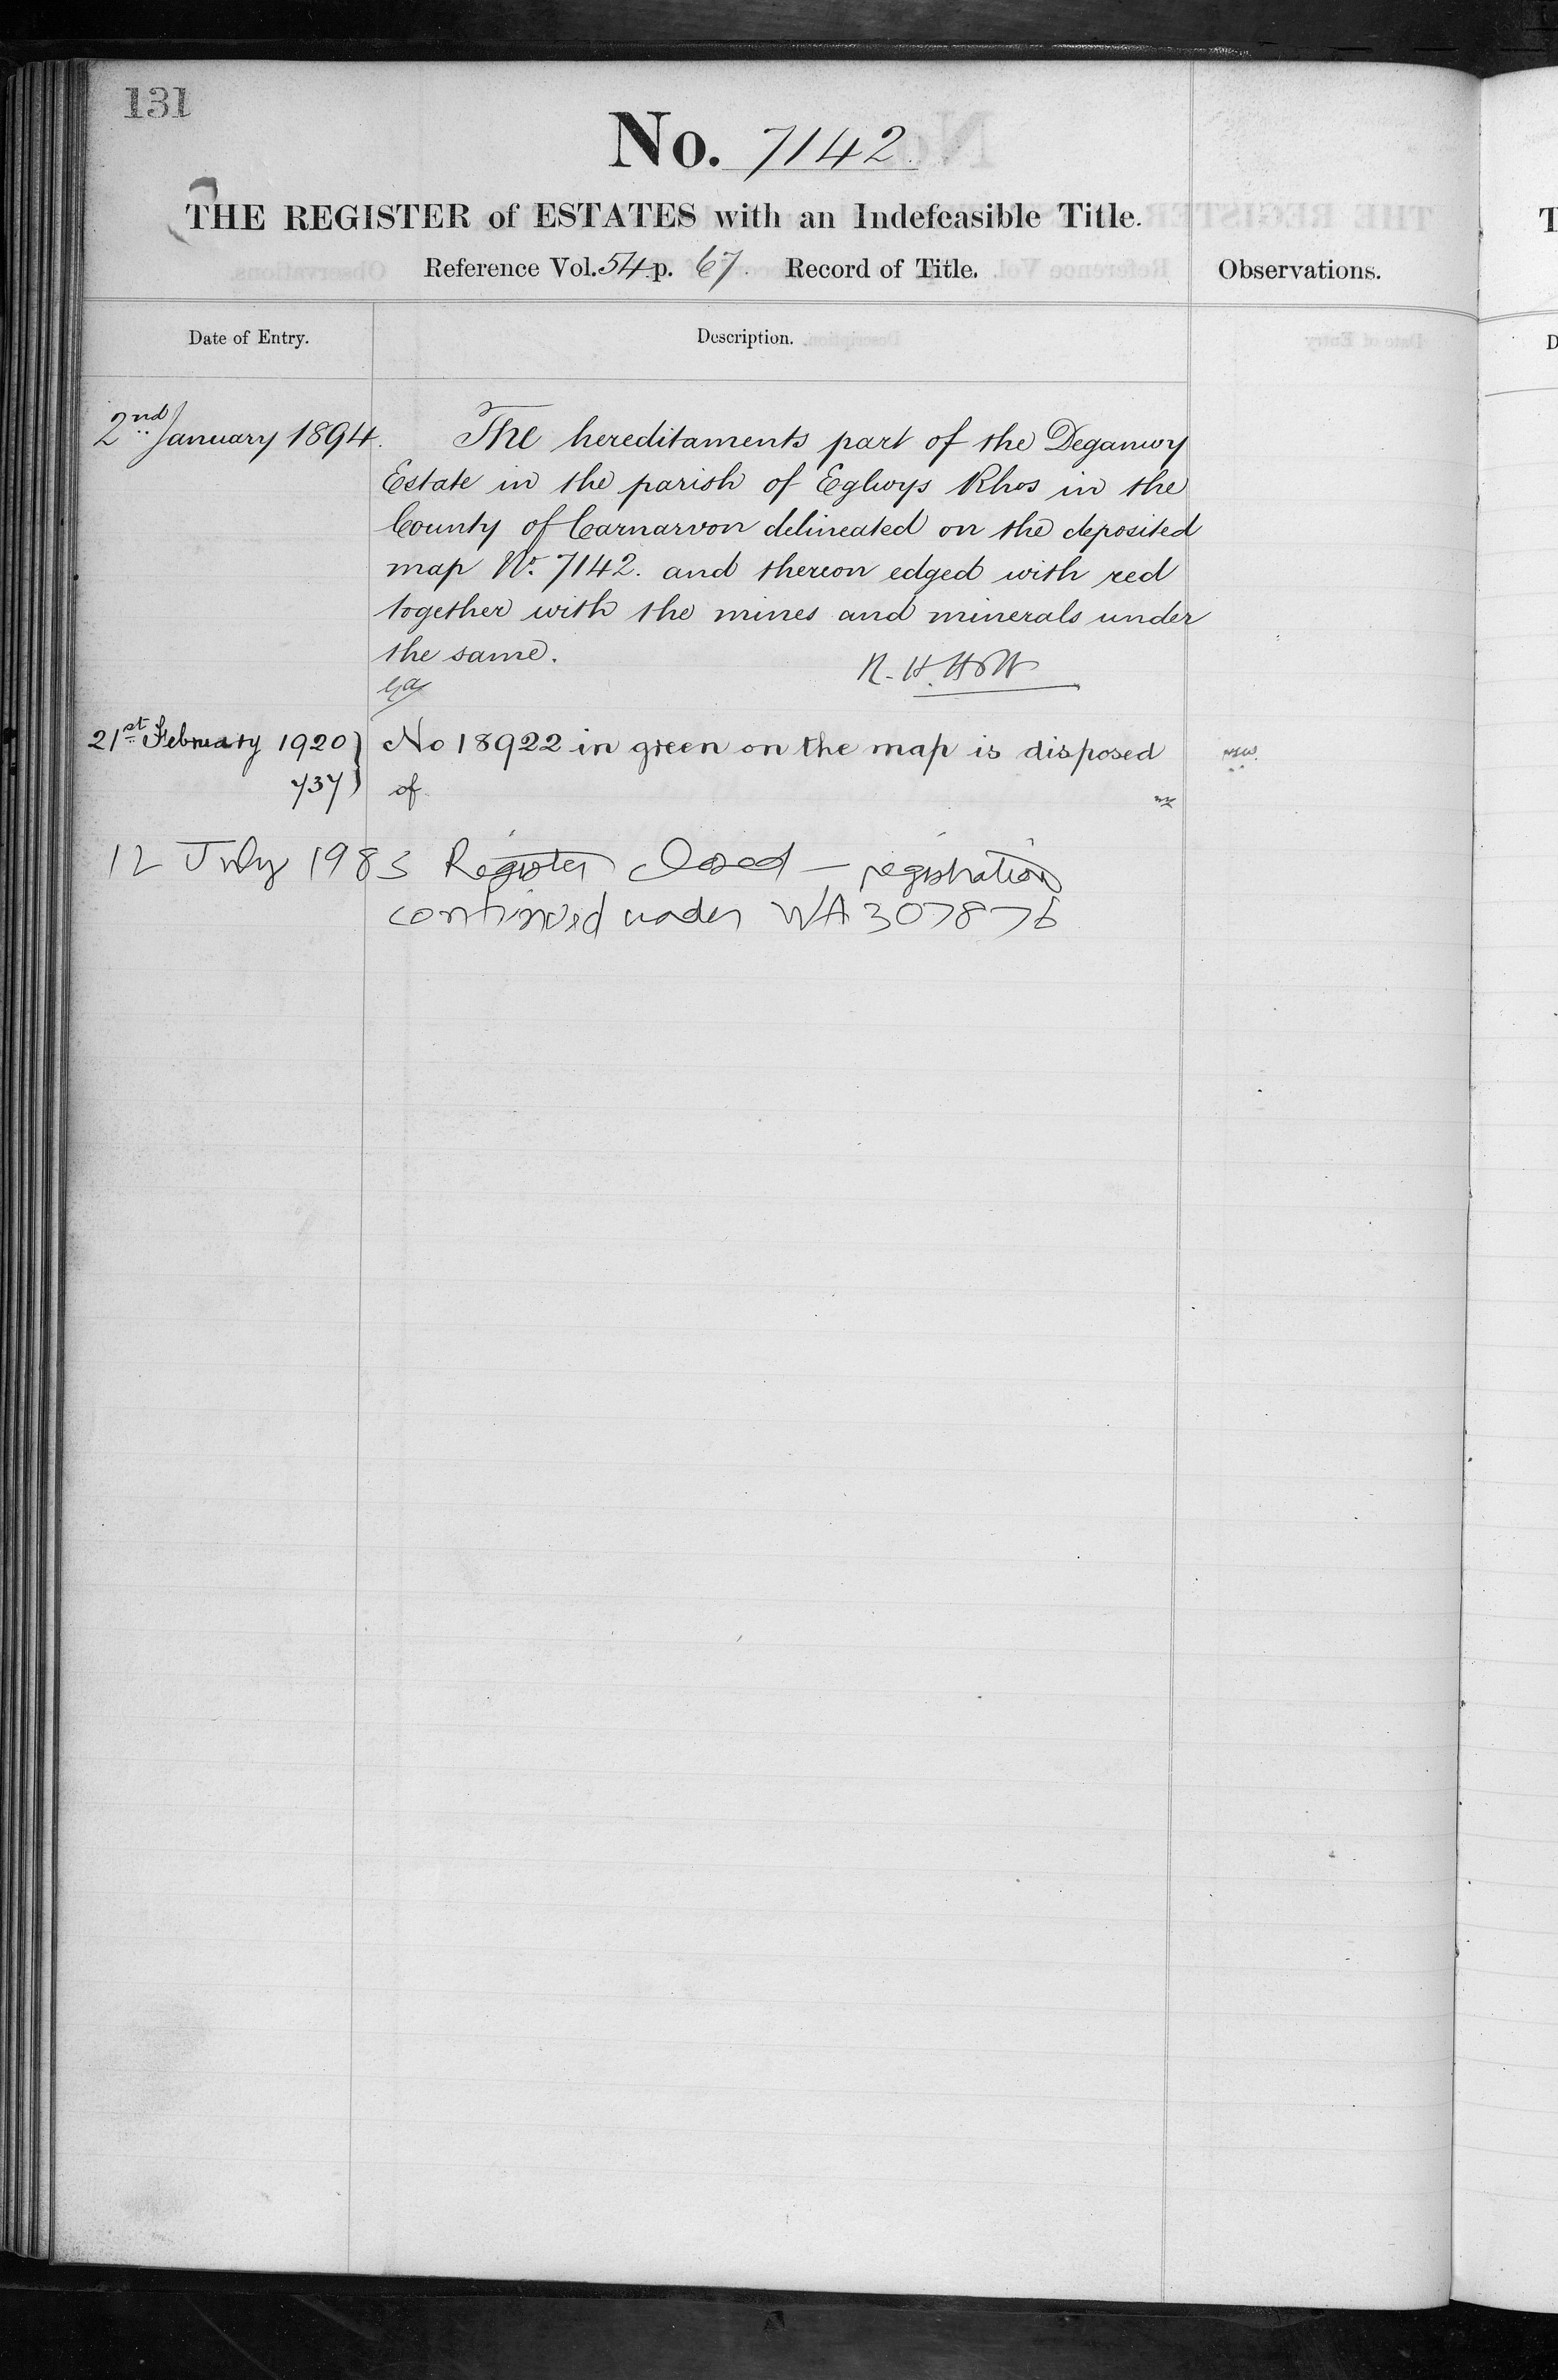 131
No. 7142.
THE REGISTER of ESTATES with an Indefeasible Title.
Reference Vol. 54 p. 67. Record of Title.
Observations.
Date of Entry.
Description.
2nd January 1894.
The hereditaments part of the Deganwy
Estate in the parish of Eglwys Rhos in the
County of Carnarvon delineated on the deposited
map No. 7142. and thereon edged with red
together with the mines and minerals under
the same.
R. H. Holt
21st February 1920
No 18922 in green on the map is disposed
737
of
12 July 1985 Register closed – registration
continued under WA 307876